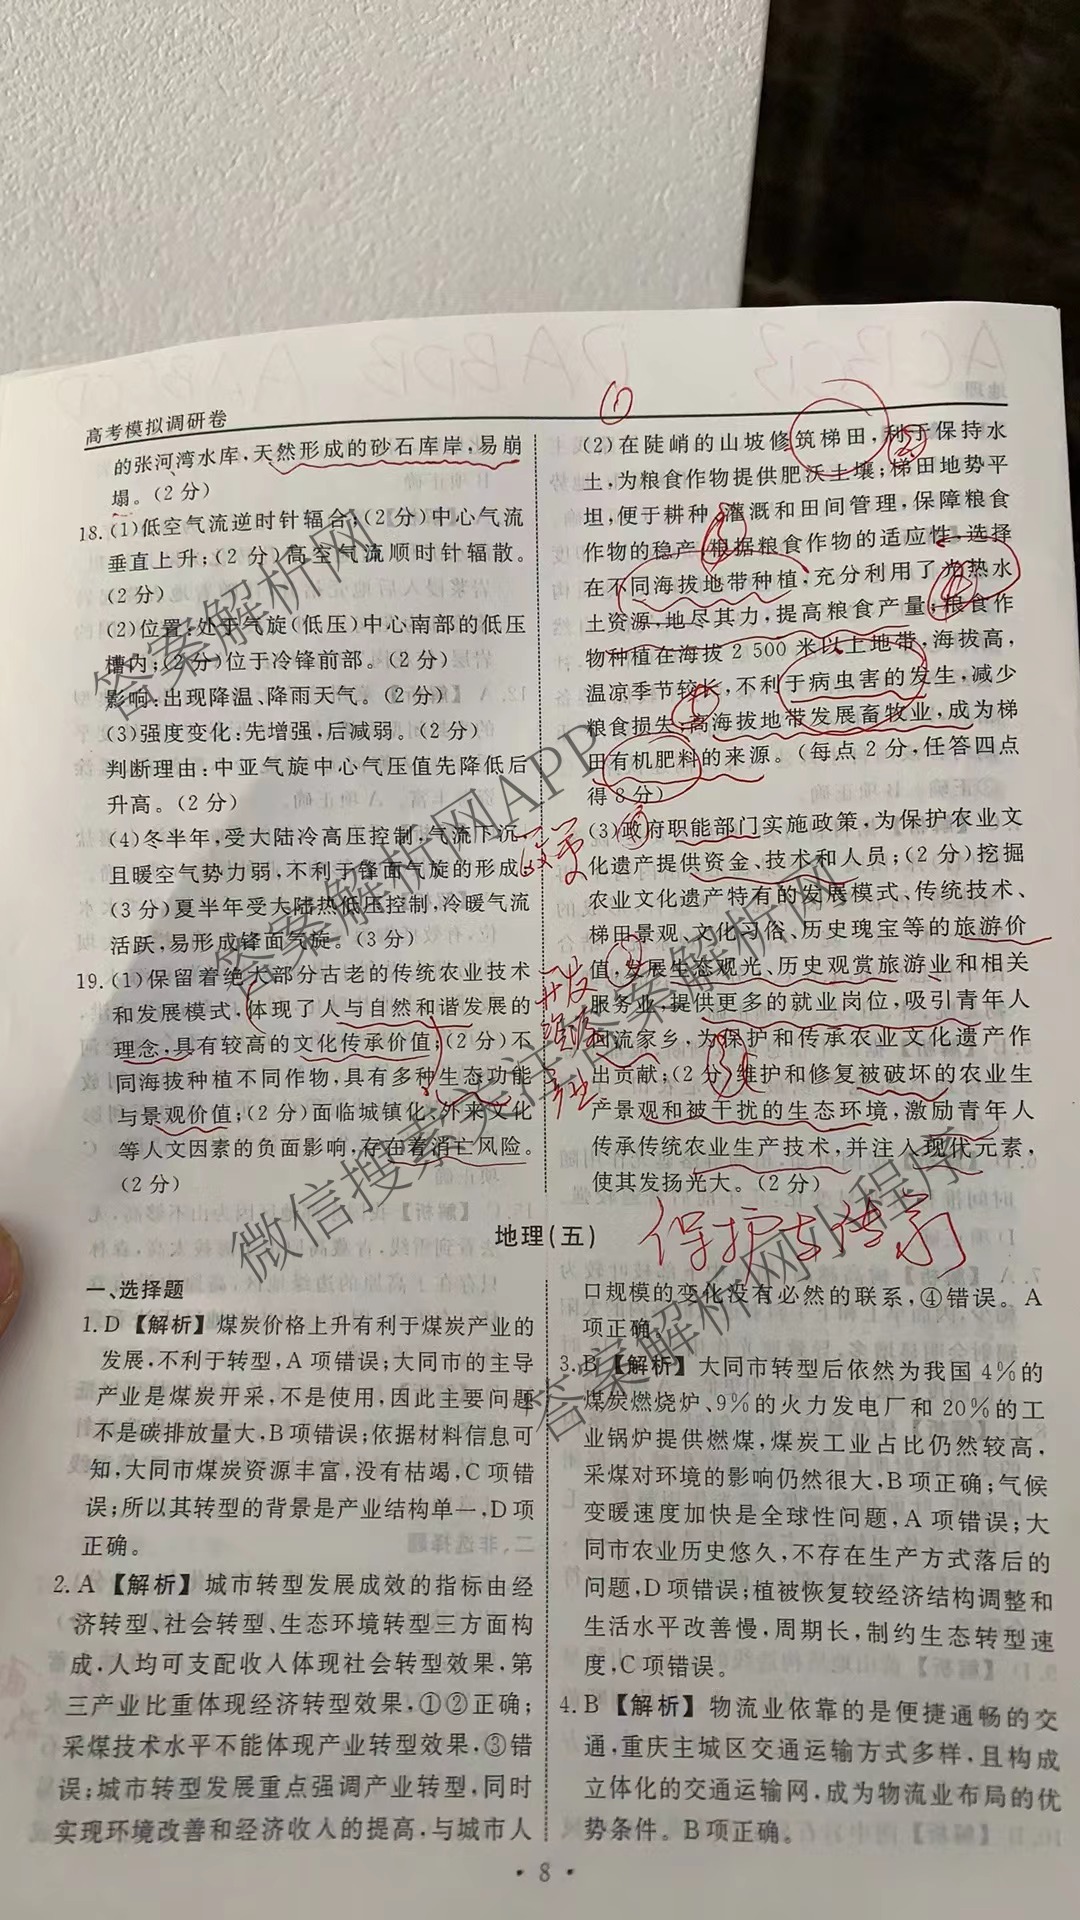 高考模拟调研卷
地理
ACBCB
DABDB
①
的张河湾水库,天然形成的砂石库岸,易崩
塌。(2分)
18.(1)低空气流逆时针辐合;(2分)中心气流
垂直上升;(2分)高空气流顺时针辐散。
(2分)
(2)位置:处于气旋(低压)中心南部的低压
槽内;(2分)位于冷锋前部。(2分)
影响:出现降温、降雨天气。(2分)
(3)强度变化:先增强,后减弱。(2分)
判断理由:中亚气旋中心气压值先降低后
升高。(2分)
(4)冬半年,受大陆冷高压控制,气流下沉,
且暖空气势力弱,不利于锋面气旋的形成;
(3分)夏半年受大陆热低压控制,冷暖气流
活跃,易形成锋面气旋。(3分)
19.(1)保留着绝大部分古老的传统农业技术
和发展模式,体现了人与自然和谐发展的
理念,具有较高的文化传承价值;(2分)不
同海拔种植不同作物,具有多种生态功能
与景观价值;(2分)面临城镇化、外来文化
等人文因素的负面影响,存在着消亡风险。
(2分)
(2)在陡峭的山坡修筑梯田,利于保持水
土,为粮食作物提供肥沃土壤;梯田地势平
坦,便于耕种、灌溉和田间管理,保障粮食
作物的稳产;根据粮食作物的适应性,选择
在不同海拔地带种植,充分利用了光热水
土资源,地尽其力,提高粮食产量;粮食作
物种植在海拔2 500米以上地带,海拔高,
温凉季节较长,不利于病虫害的发生,减少
粮食损失;高海拔地带发展畜牧业,成为梯
田有机肥料的来源。(每点2分,任答四点
得8分)
(3)政府职能部门实施政策,为保护农业文
化遗产提供资金、技术和人员;(2分)挖掘
农业文化遗产特有的发展模式、传统技术、
梯田景观、文化习俗、历史瑰宝等的旅游价
值,发展生态观光、历史观赏旅游业和相关
服务业,提供更多的就业岗位,吸引青年人
回流家乡,为保护和传承农业文化遗产作
出贡献;(2分)维护和修复被破坏的农业生
产景观和被干扰的生态环境,激励青年人
传承传统农业生产技术,并注入现代元素,
使其发扬光大。(2分)
政策
开发
保护与传承
地理(五)
一、选择题
1.D【解析】煤炭价格上升有利于煤炭产业的
发展,不利于转型,A项错误;大同市的主导
产业是煤炭开采,不是使用,因此主要问题
不是碳排放量大,B项错误;依据材料信息可
知,大同市煤炭资源丰富,没有枯竭,C项错
误;所以其转型的背景是产业结构单一,D项
正确。
2.A【解析】城市转型发展成效的指标由经
济转型、社会转型、生态环境转型三方面构
成,人均可支配收入体现社会转型效果,第
三产业比重体现经济转型效果,①②正确;
采煤技术水平不能体现产业转型效果,③错
误;城市转型发展重点强调产业转型,同时
实现环境改善和经济收入的提高,与城市人
口规模的变化没有必然的联系,④错误。A
项正确。
3.B【解析】大同市转型后依然为我国4%的
煤炭燃烧炉、9%的火力发电厂和20%的工
业锅炉提供燃煤,煤炭工业占比仍然较高,
采煤对环境的影响仍然很大,B项正确;气候
变暖速度加快是全球性问题,A项错误;大
同市农业历史悠久,不存在生产方式落后的
问题,D项错误;植被恢复较经济结构调整和
生活水平改善慢,周期长,制约生态转型速
度,C项错误。
4.B【解析】物流业依靠的是便捷通畅的交
通,重庆主城区交通运输方式多样,且构成
立体化的交通运输网,成为物流业布局的优
势条件。B项正确。
· 8 ·
答案解析网
答案解析网APP
微信搜索关注答案解析网
答案解析网小程序